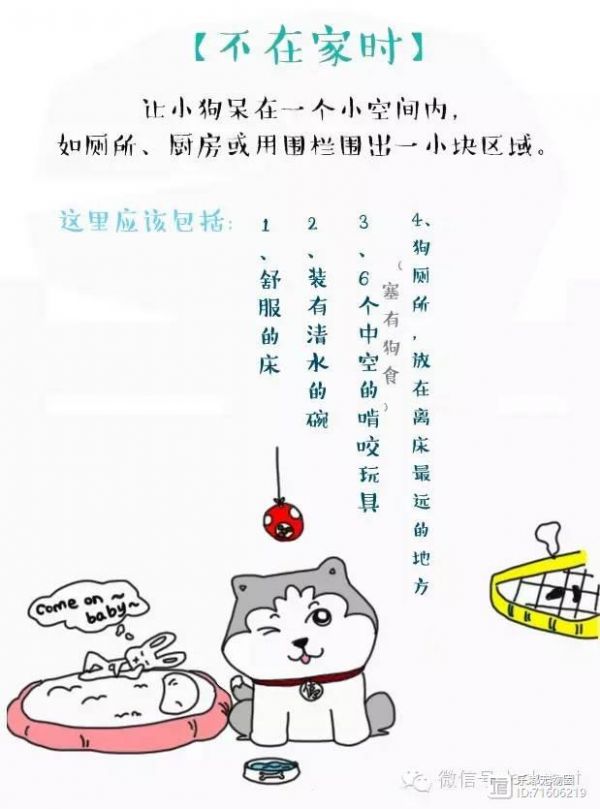 【不在家时】
让小狗呆在一个小空间内，
如厕所、厨房或用围栏围出一小块区域。
这里应该包括:
1、舒服的床
2、装有清水的碗
3、6个中空的啃咬玩具
（塞有狗食）
4、狗厕所，放在离床最远的地方
come on~
baby~
微信号
ID:71606219